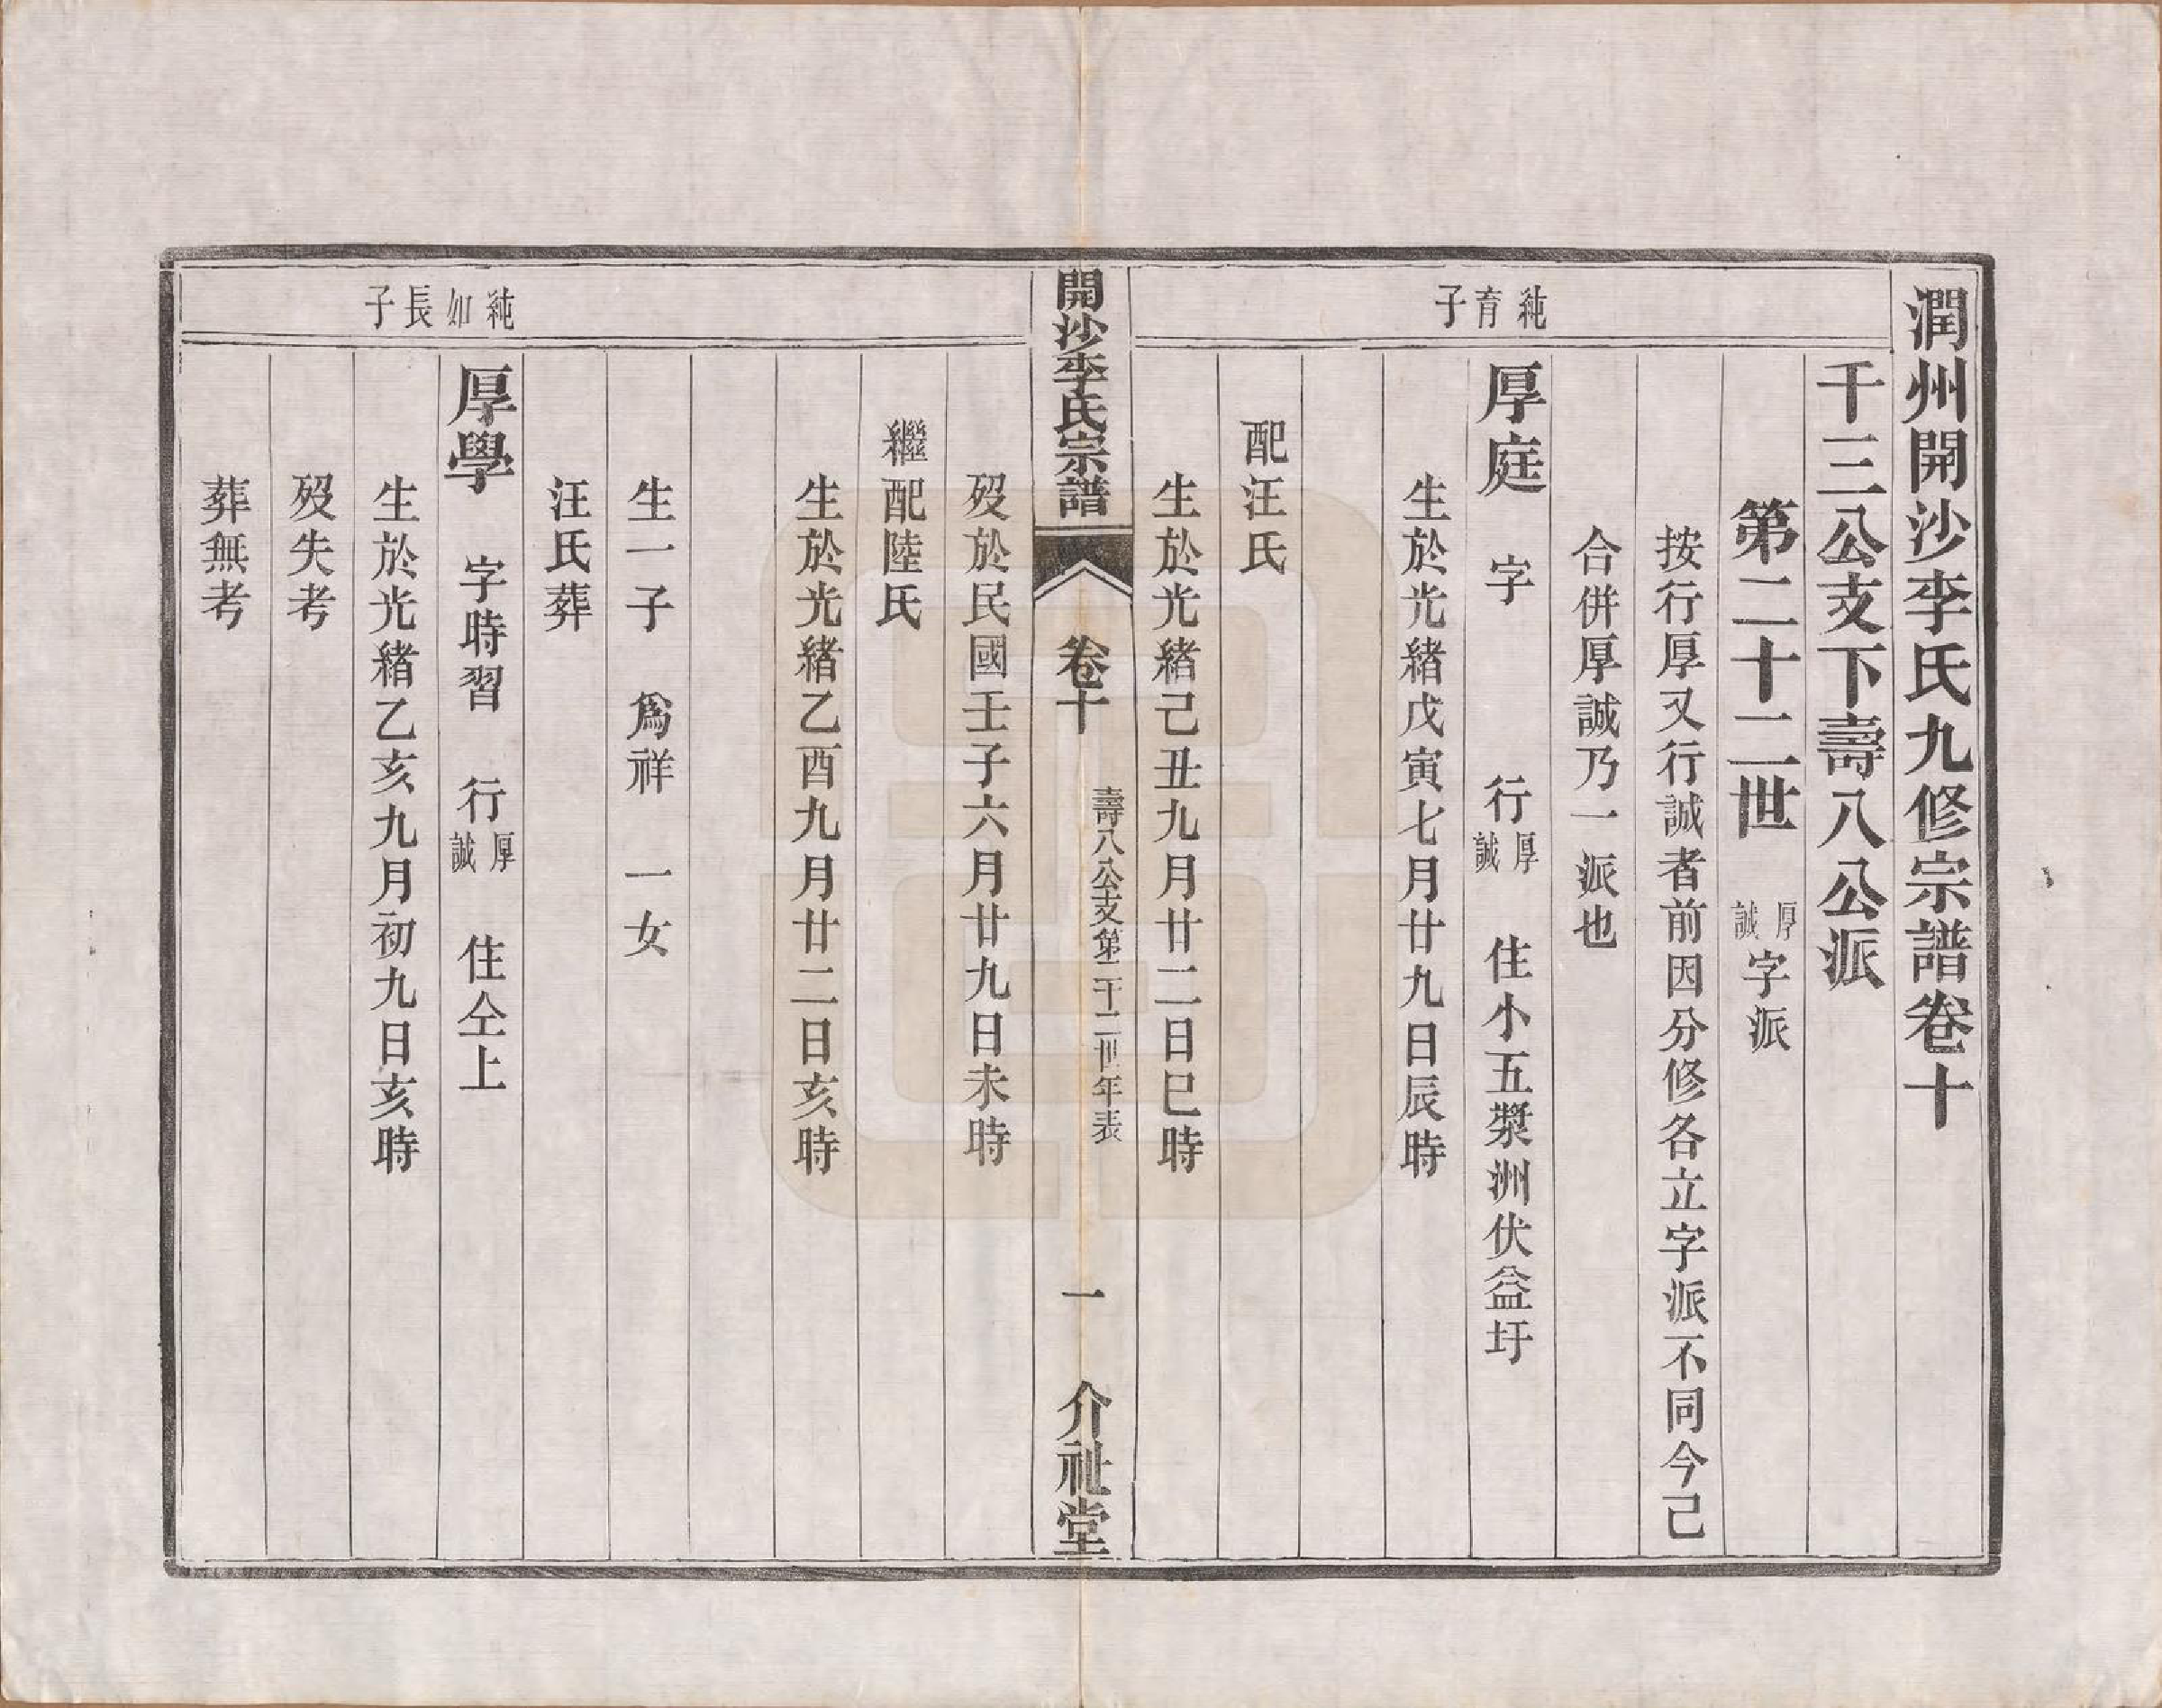 潤州開沙李氏九修宗譜卷十
千三公支下壽八公派
第二十二世 厚誠字派
按行厚又行誠者前因分修各立字派不同今己
合併厚誠乃一派也
純育子
厚庭 字 行厚誠 住小五槳洲伏益圩
生於光緒戊寅七月廿九日辰時
配汪氏
生於光緒己丑九月廿二日巳時
開沙李氏宗譜 卷十 壽八公支第二十二世年表 一 介祉堂
歿於民國壬子六月廿九日未時
繼配陸氏
生於光緒乙酉九月廿二日亥時
生一子 爲祥 一女
汪氏葬
純如長子
厚學 字時習 行厚誠 住仝上
生於光緒乙亥九月初九日亥時
歿失考
葬無考